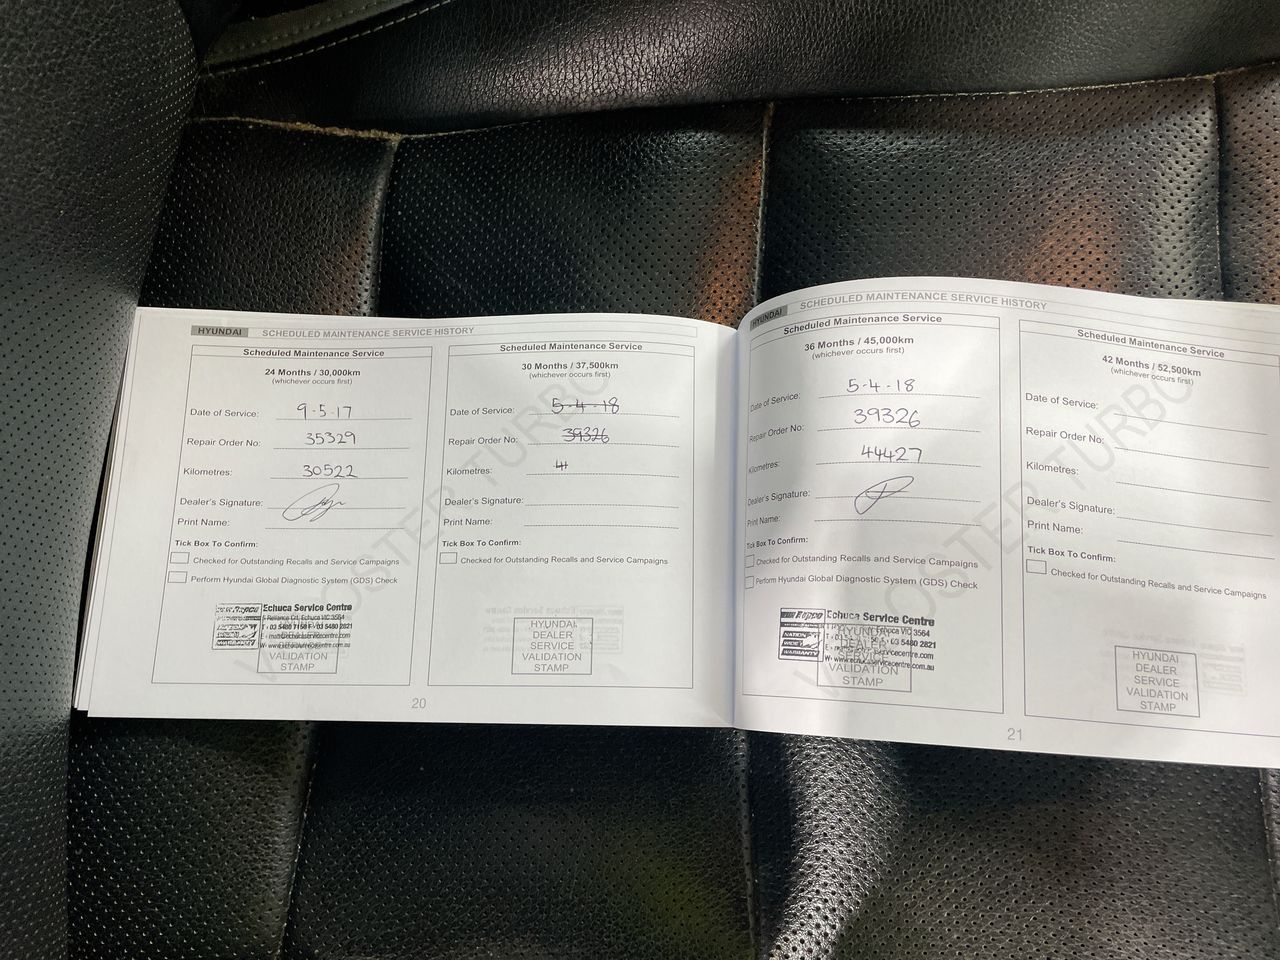 HYUNDAI SCHEDULED MAINTENANCE SERVICE HISTORY
Scheduled Maintenance Service
24 Months / 30,000km
(whichever occurs first)
Date of Service: 9-5-17
Repair Order No: 35329
Kilometres: 30522
Dealer's Signature:
Print Name:
Tick Box To Confirm:
Checked for Outstanding Recalls and Service Campaigns
Perform Hyundai Global Diagnostic System (GDS) Check
Echuca Service Centre
Reliance Cct, Echuca VIC 3564
T: 03 5480 7150 F: 03 5480 2821
VALIDATION
STAMP
Scheduled Maintenance Service
30 Months / 37,500km
(whichever occurs first)
Date of Service: 5-4-18
Repair Order No: 39326
Kilometres: 4
Dealer's Signature:
Print Name:
Tick Box To Confirm:
Checked for Outstanding Recalls and Service Campaigns
HYUNDAI
DEALER
SERVICE
VALIDATION
STAMP
20
HYUNDAI SCHEDULED MAINTENANCE SERVICE HISTORY
Scheduled Maintenance Service
36 Months / 45,000km
(whichever occurs first)
Date of Service: 5-4-18
Repair Order No: 39326
Kilometres: 44427
Dealer's Signature:
Print Name:
Tick Box To Confirm:
Checked for Outstanding Recalls and Service Campaigns
Perform Hyundai Global Diagnostic System (GDS) Check
Repco
NATION
WIDE
WARRANTY
Echuca Service Centre
Echuca VIC 3564
03 5480 2821
W: www.echucaservicecentre.com.au
HYUNDAI
DEALER
SERVICE
VALIDATION
STAMP
Scheduled Maintenance Service
42 Months / 52,500km
(whichever occurs first)
Date of Service:
Repair Order No:
Kilometres:
Dealer's Signature:
Print Name:
Tick Box To Confirm:
Checked for Outstanding Recalls and Service Campaigns
HYUNDAI
DEALER
SERVICE
VALIDATION
STAMP
21
VELOSTER TURBO
VELOSTER TURBO